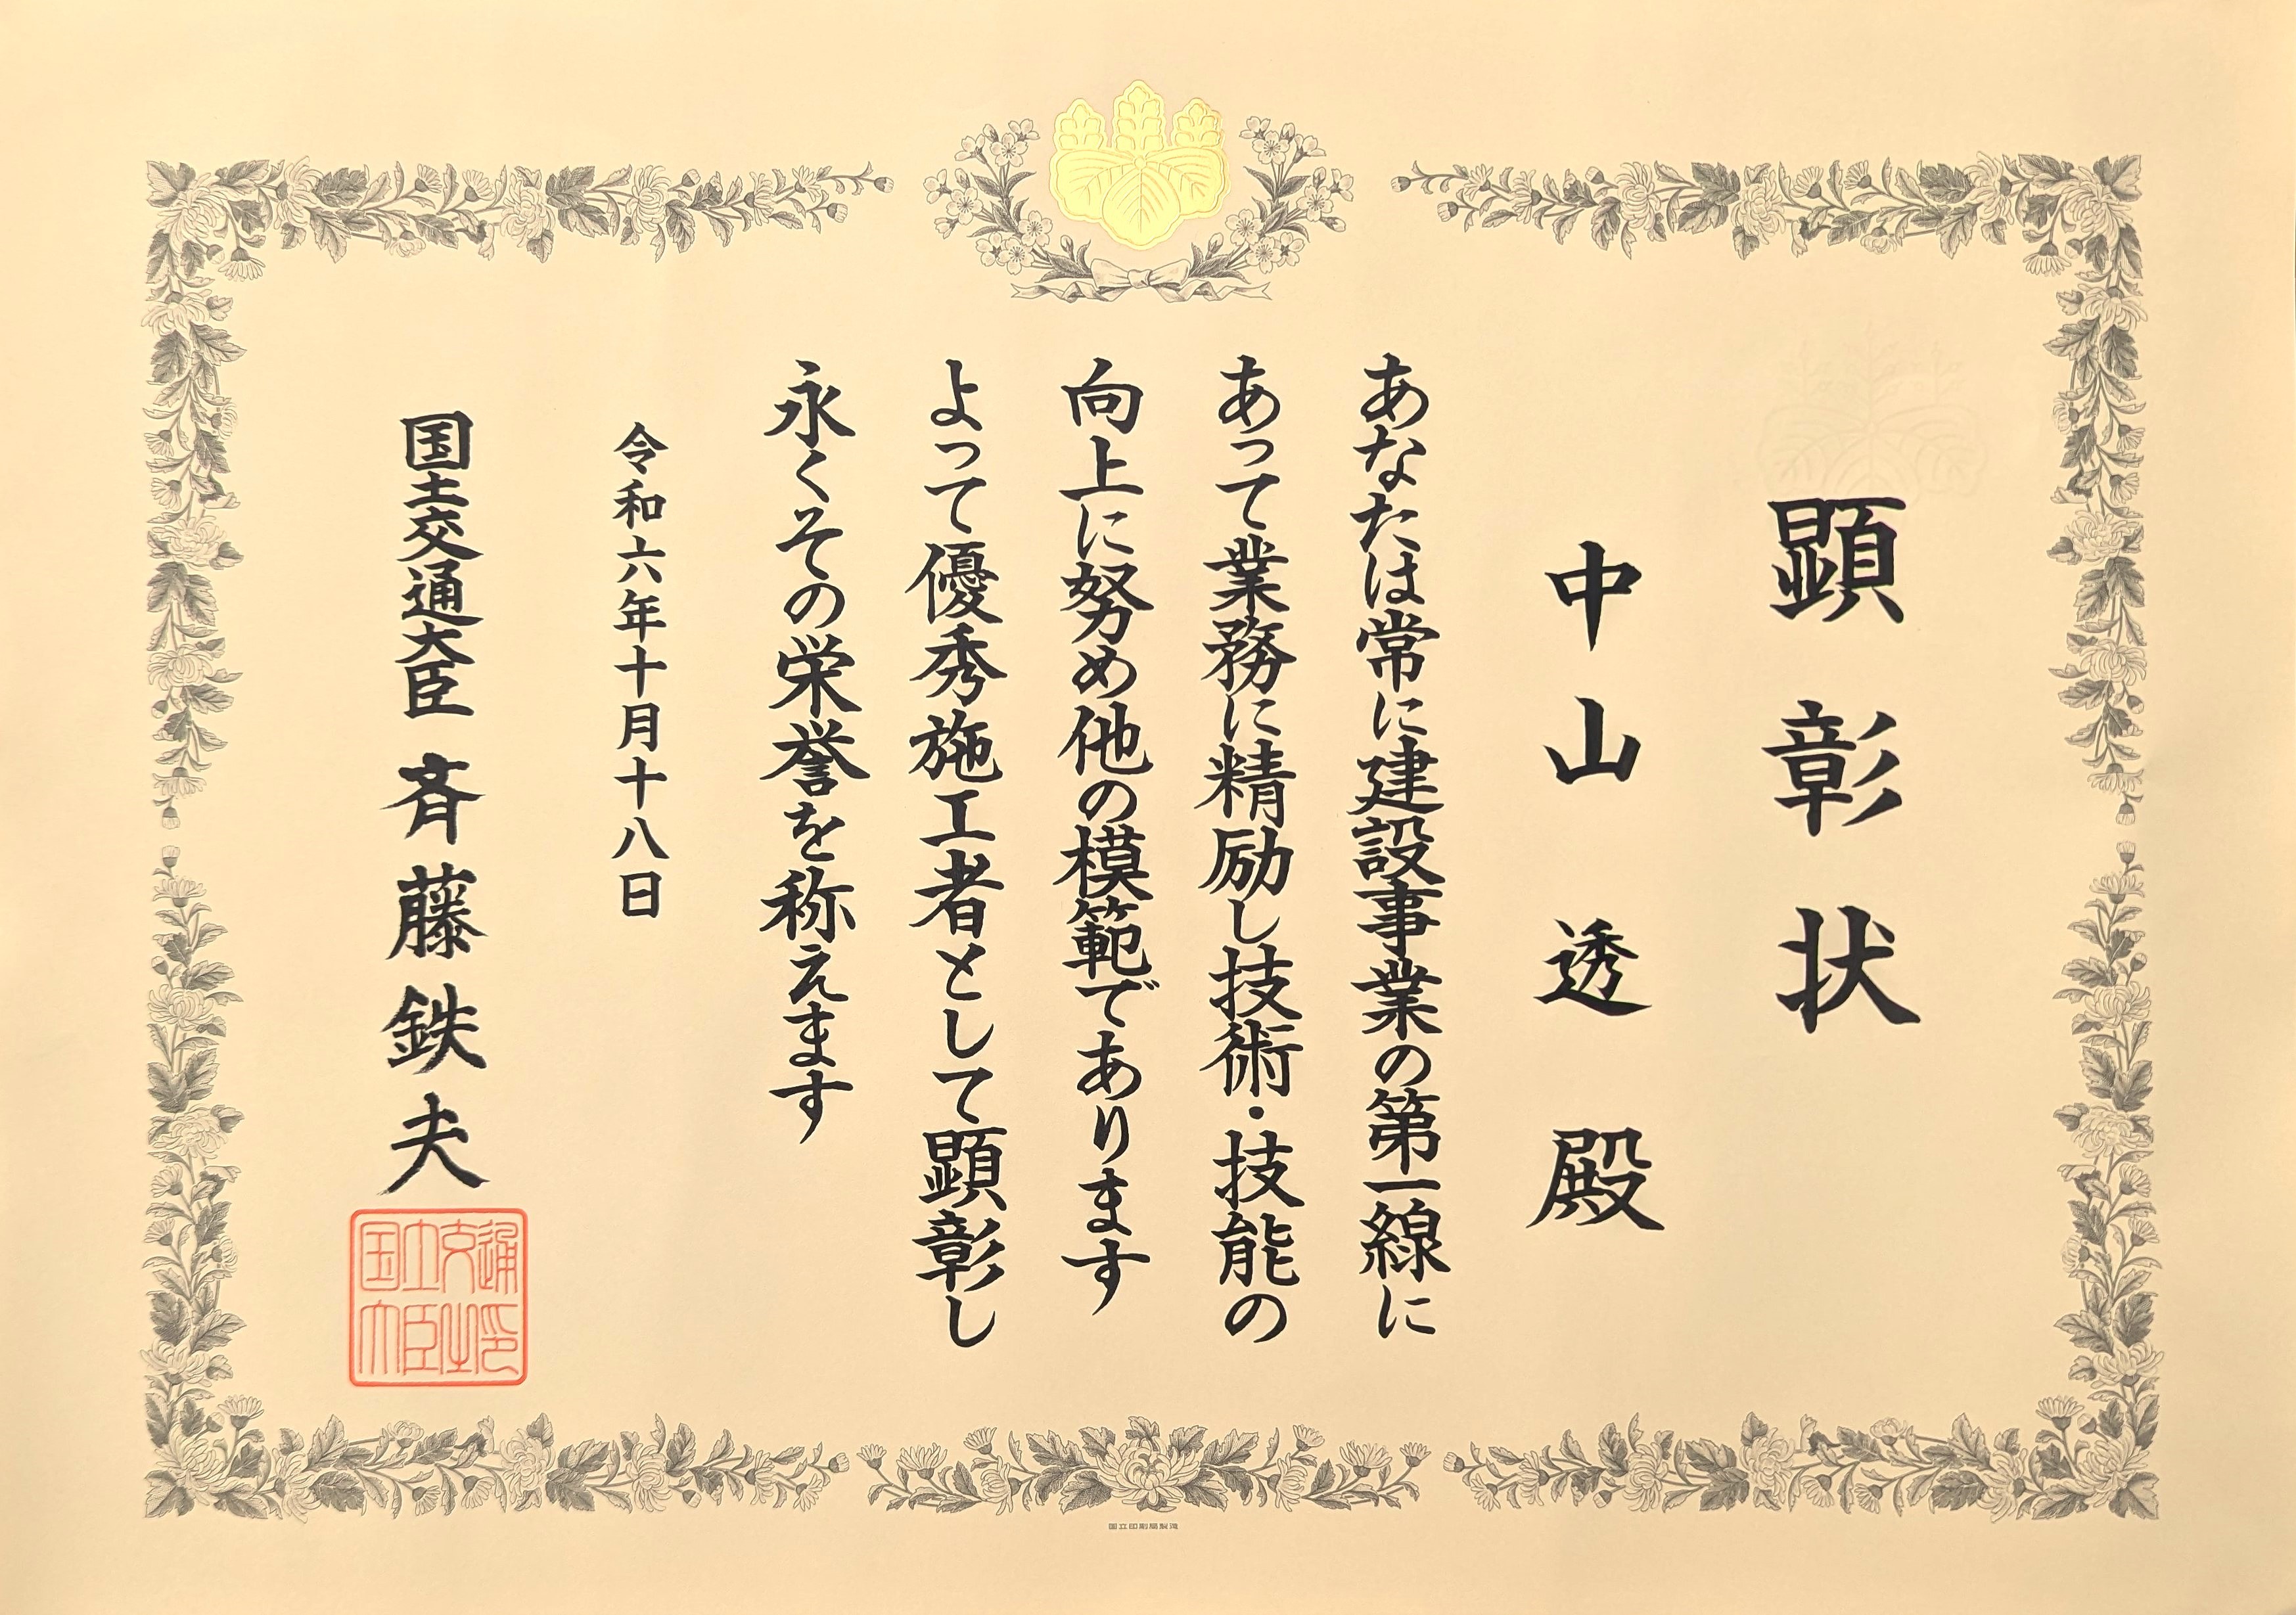 顕彰状
中山 透 殿
あなたは常に建設事業の第一線に
あって業務に精励し技術・技能の
向上に努め他の模範であります
よって優秀施工者として顕彰し
永くその栄誉を称えます
令和六年十月十八日
国土交通大臣 斉藤鉄夫
国土交通
大臣之印
国立印刷局製造